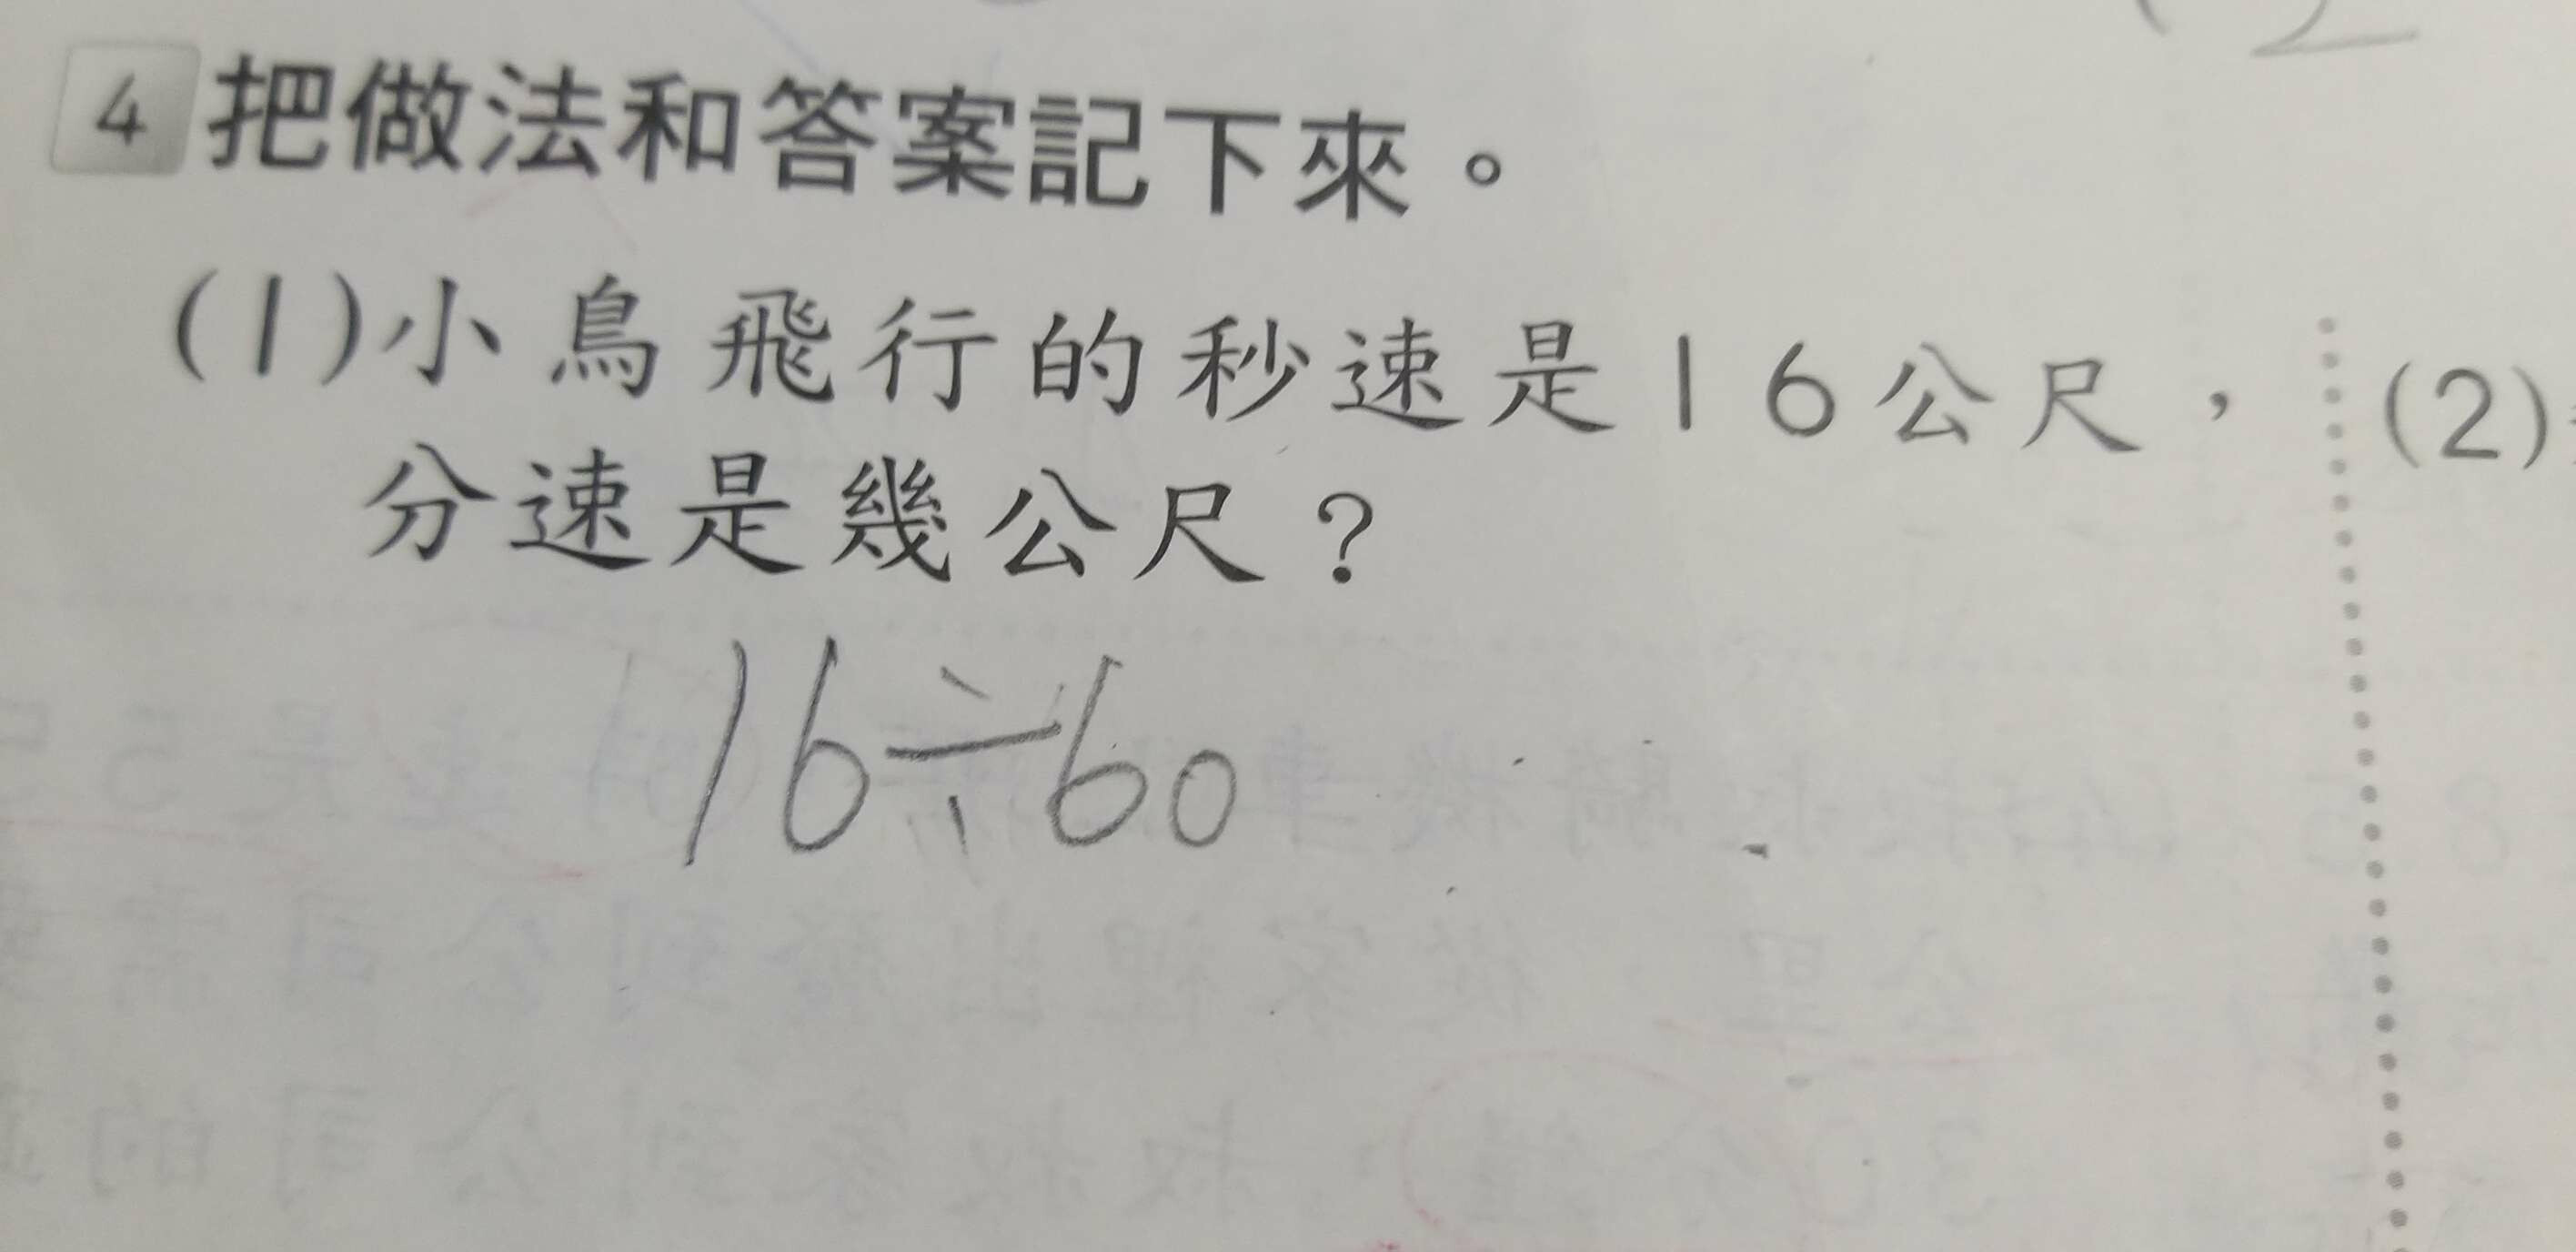 4 把做法和答案記下來。
(1)小鳥飛行的秒速是16公尺，
分速是幾公尺？
16÷60
(2)